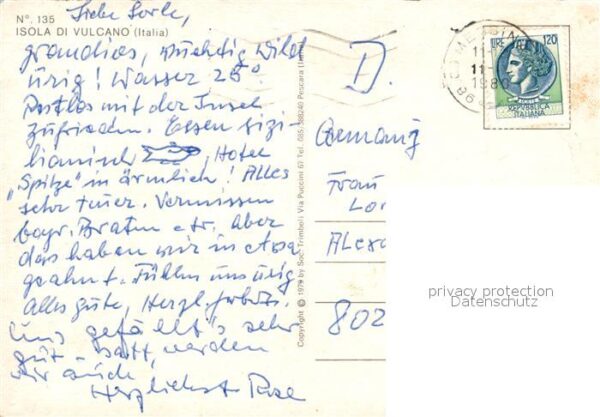 Nº. 135
ISOLA DI VULCANO (Italia)
Liebe Lorle,
grandios, wuchtig wild
urig! Wasser 25°
Restlos mit der Insel
zufrieden. Essen sizi-
lianisch, Hotel
„Spitze" in ärmlich! Alles
sehr teuer. Vermissen
bayr. Braten etc. Aber
das haben wir in etwa
geahnt. Fühlen uns urig
Alles Gute, Herzl.
Uns gefällt's sehr
gut - satt, werden
wir auch
Herzlichst Rose
Copyright © 1979 by Soc. Trimboli Via Puccini 67 Tel. 085/388240 Pescara
D.
Germany
Frau
Lor
Alexa
802
MESSINA
1980
LIRE 120
REPVBBLICA
ITALIANA
privacy protection
Datenschutz